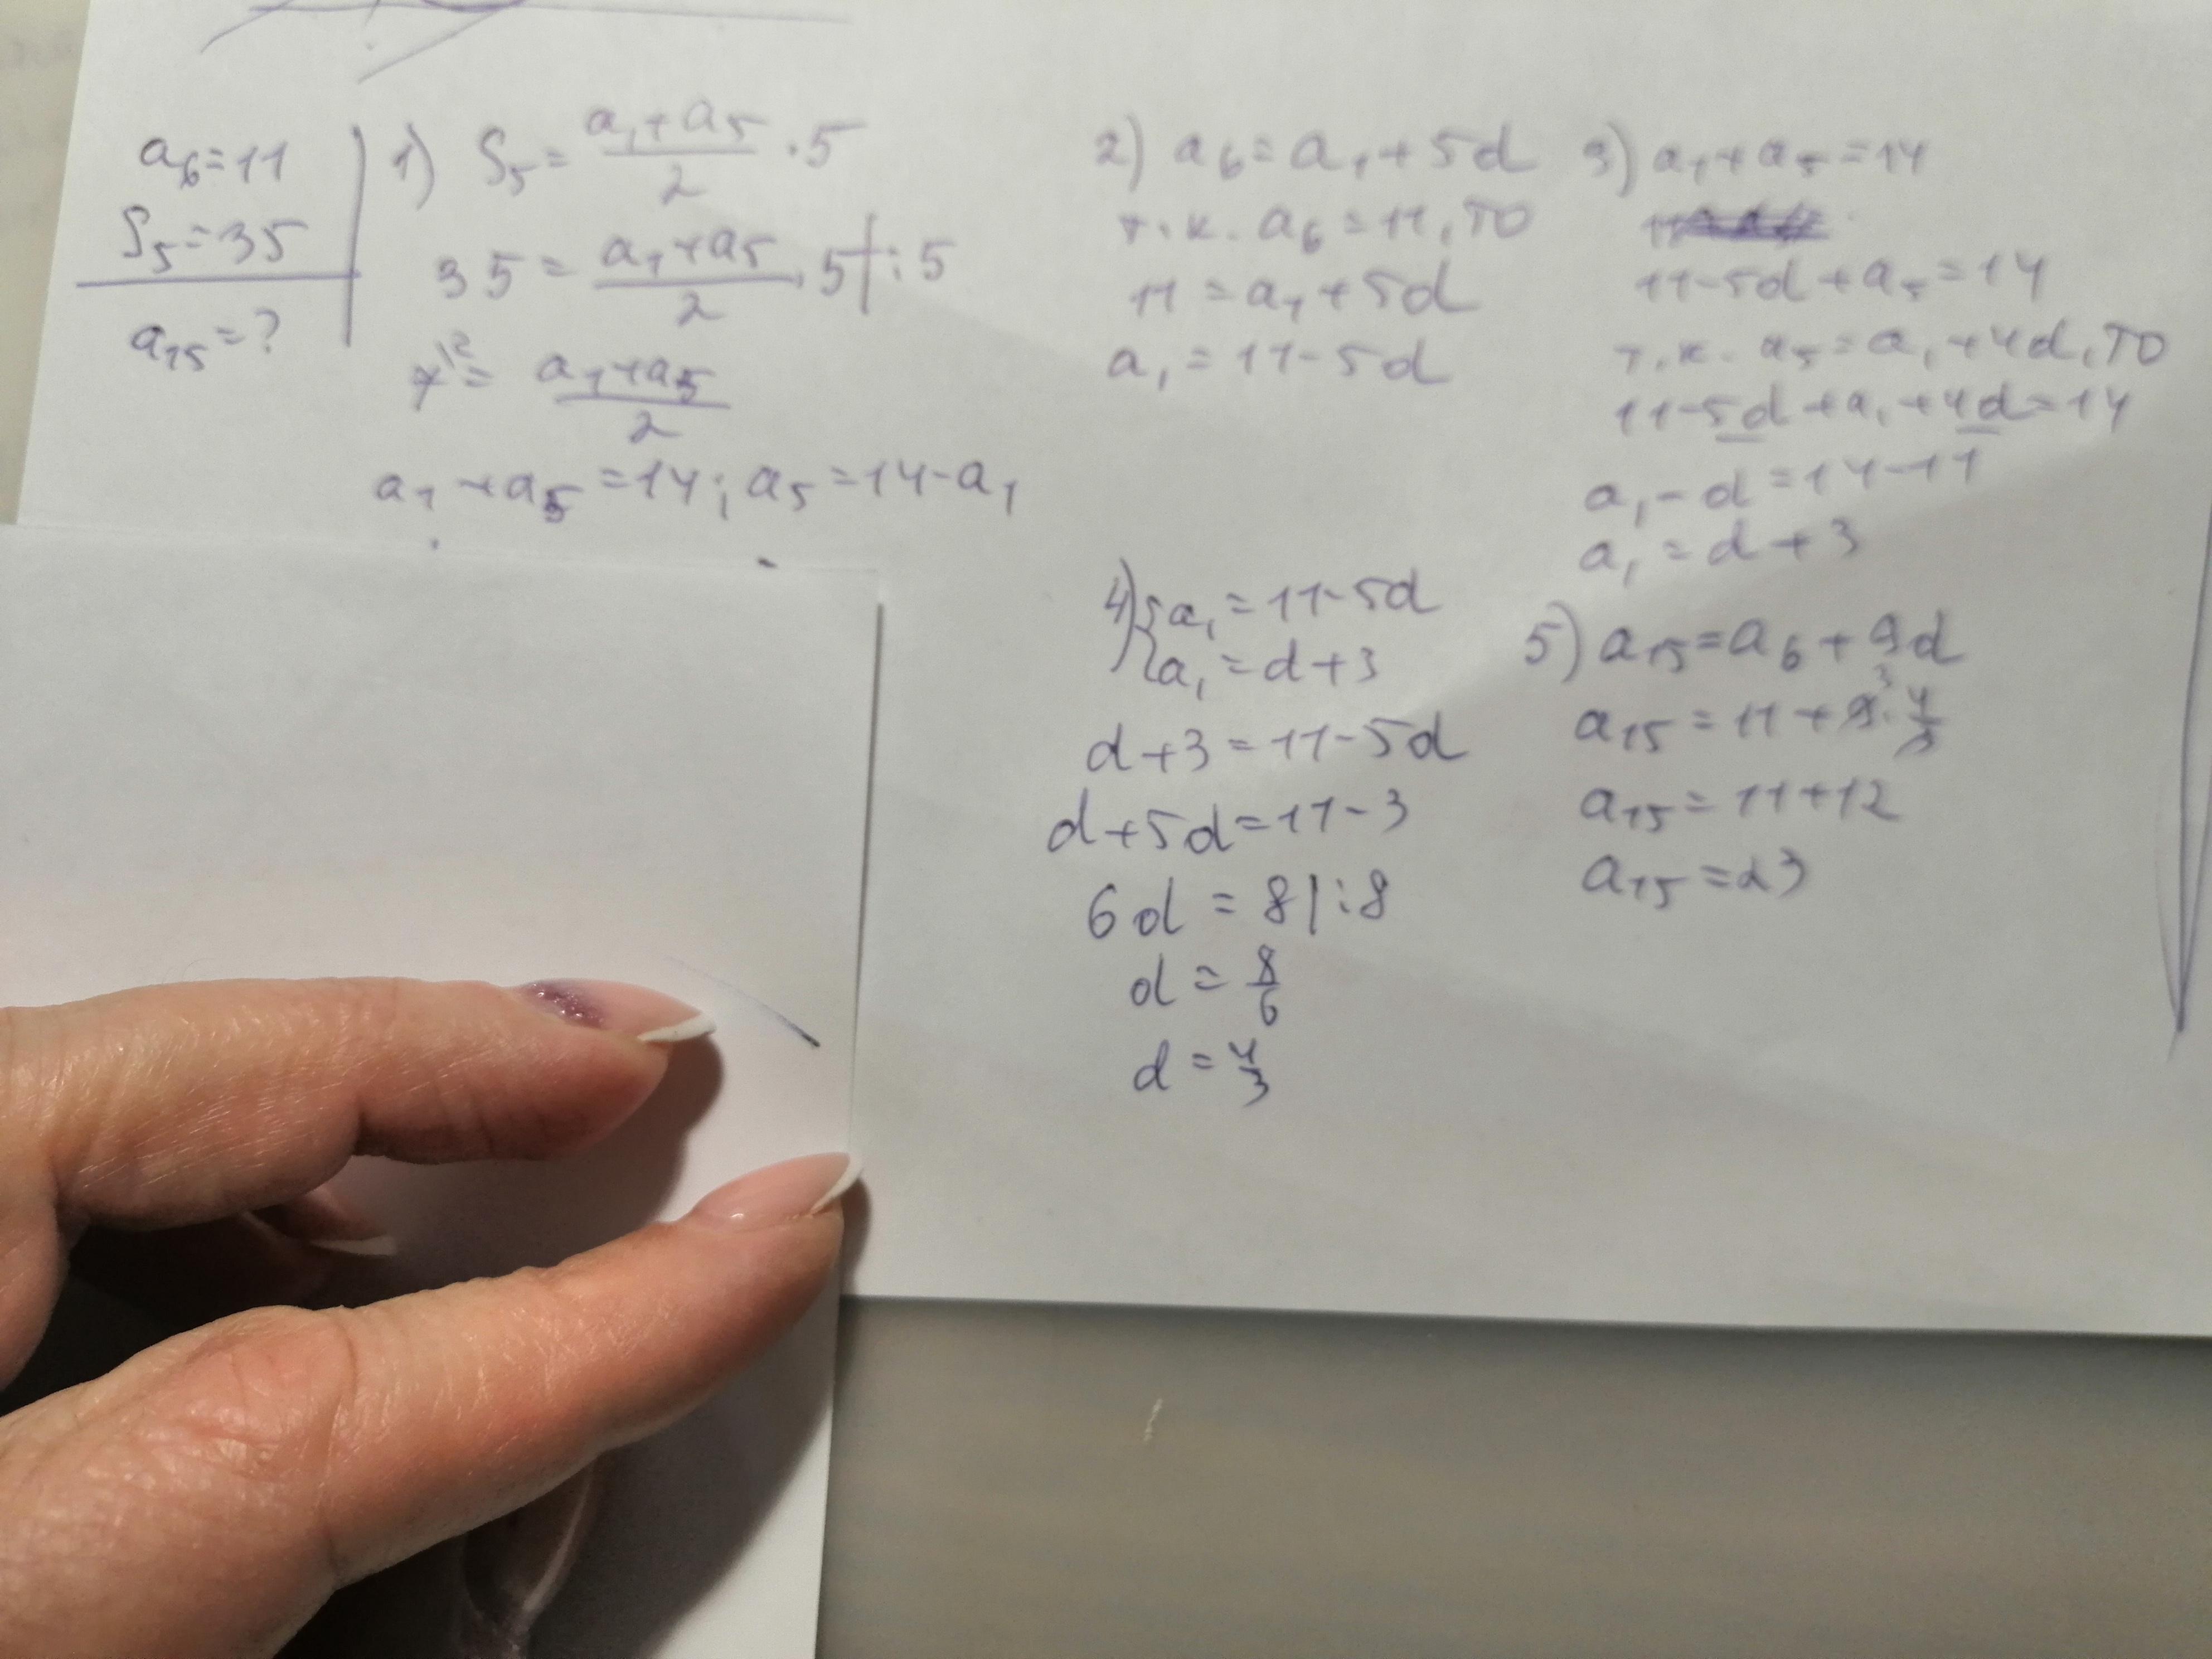 a₆=11
S₅=35
a₁₅=?
1) S₅= (a₁+a₅)/2 ·5
35= (a₁+a₅)/2 ·5 |:5
7\² = (a₁+a₅)/2
a₁+a₅=14; a₅=14-a₁
2) a₆=a₁+5d
т.к. a₆=11, то
11=a₁+5d
a₁=11-5d
3) a₁+a₅=14
11-5d+a₅=14
т.к. a₅=a₁+4d, то
11-5d+a₁+4d=14
a₁-d=14-11
a₁=d+3
4) { a₁=11-5d
a₁=d+3
d+3=11-5d
d+5d=11-3
6d=8 |:8
d=8/6
d=4/3
5) a₁₅=a₆+9d
a₁₅=11+9³·4/3
a₁₅=11+12
a₁₅=23